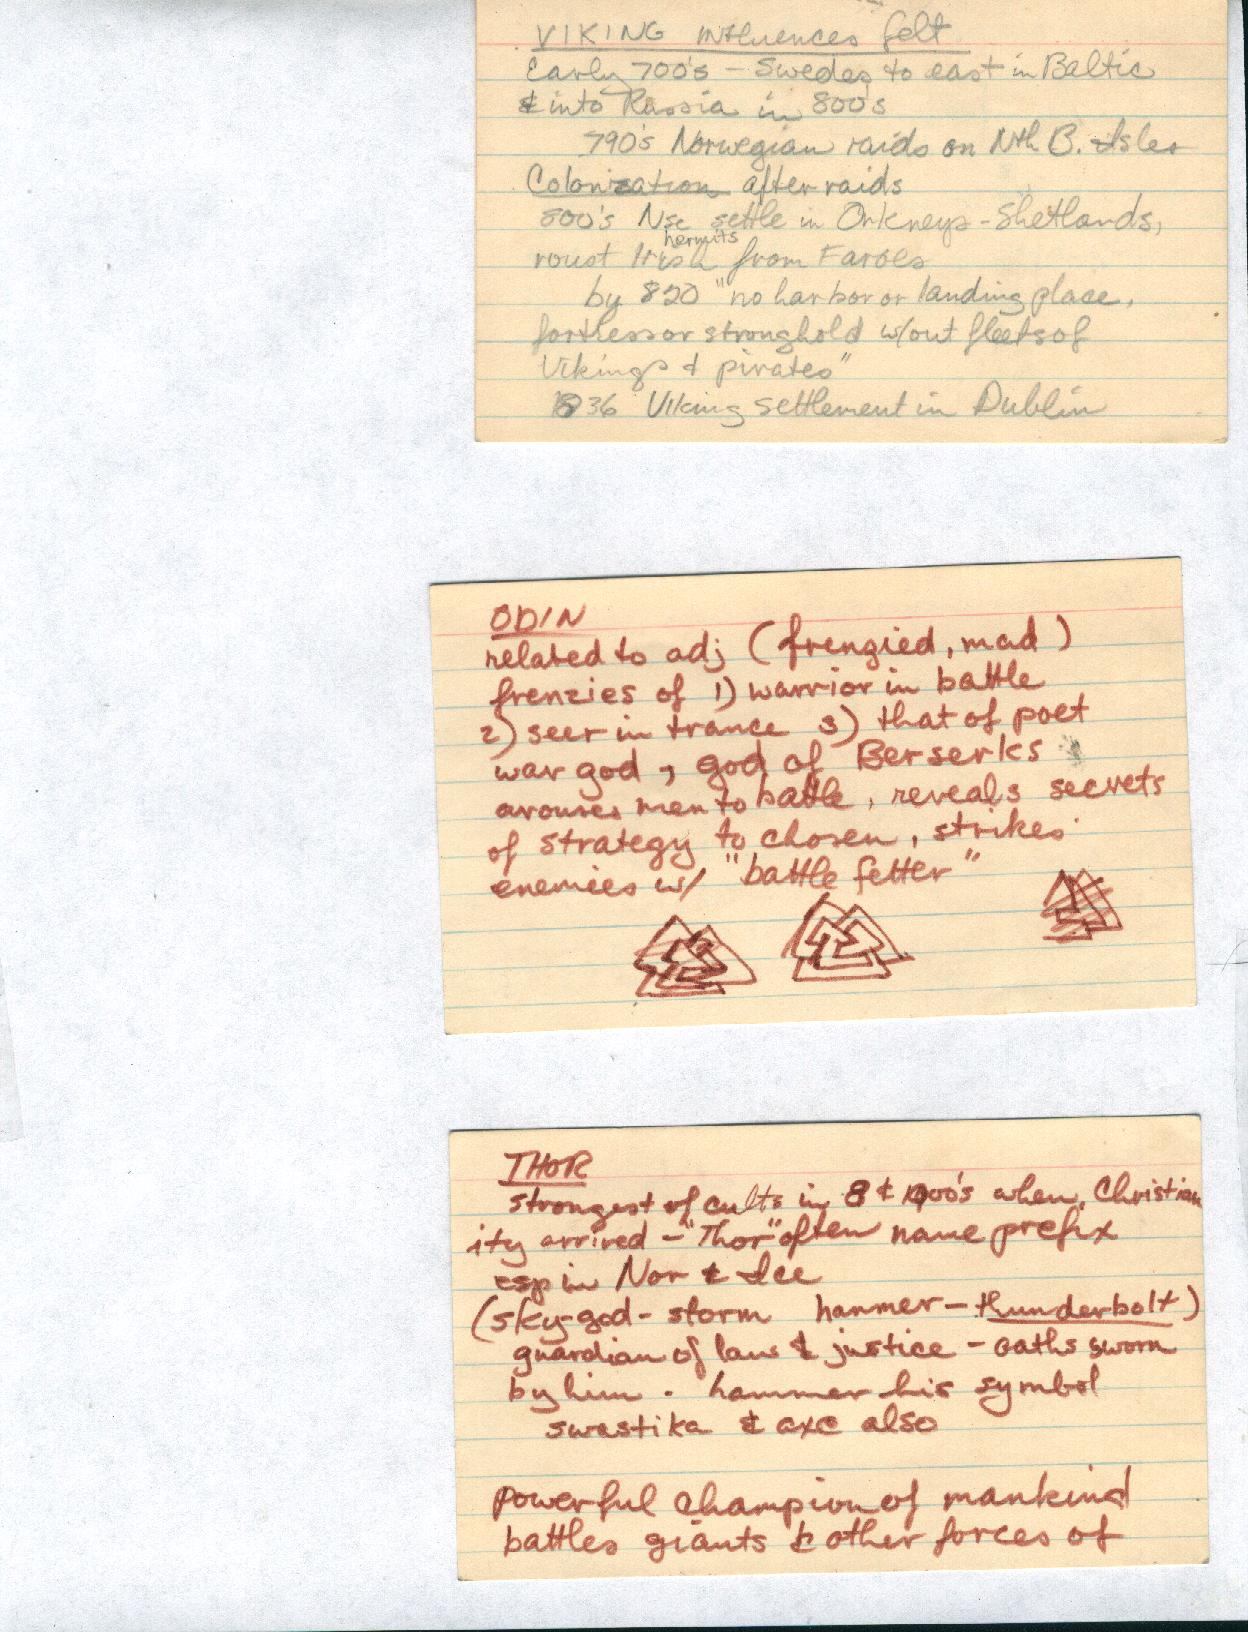 VIKING influences felt
Early 700's - Swedes to east in Baltic
& into Russia in 800's
790's Norwegian raids on Nth B. Isles
Colonization after raids
800's Nse settle in Orkneys - Shetlands,
hermits
roust Irish from Faroes
by 820 "no harbor or landing place,
fortress or stronghold w/out fleets of
Vikings & pirates"
836 Viking settlement in Dublin
ODIN
related to adj (frenzied, mad)
frenzies of 1) warrior in battle
2) seer in trance 3) that of poet
war god, god of Berserks
arouses men to battle, reveals secrets
of strategy to chosen, strikes
enemies w/ "battle fetter"
THOR
strongest of cults in 8 & 900's when Christian
ity arrived - "Thor" often name prefix
esp in Nor & Ice
(sky-god - storm hammer - thunderbolt)
guardian of law & justice - oaths sworn
by him. hammer his symbol
swastika & axe also
powerful champion of mankind
battles giants & other forces of